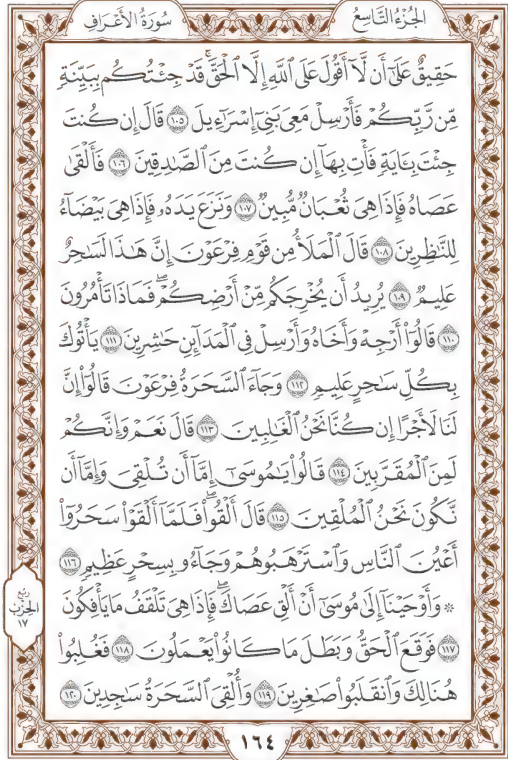 الجُزْءُ التَّاسِعُ سُورَةُ الأَعْرَافِ
حَقِيقٌ عَلَىٰٓ أَن لَّآ أَقُولَ عَلَى ٱللَّهِ إِلَّا ٱلۡحَقَّۚ قَدۡ جِئۡتُكُم بِبَيِّنَةٖ
مِّن رَّبِّكُمۡ فَأَرۡسِلۡ مَعِيَ بَنِيٓ إِسۡرَٰٓءِيلَ ١٠٥ قَالَ إِن كُنتَ
جِئۡتَ بِـَٔايَةٖ فَأۡتِ بِهَآ إِن كُنتَ مِنَ ٱلصَّٰدِقِينَ ١٠٦ فَأَلۡقَىٰ
عَصَاهُ فَإِذَا هِيَ ثُعۡبَانٞ مُّبِينٞ ١٠٧ وَنَزَعَ يَدَهُۥ فَإِذَا هِيَ بَيۡضَآءُ
لِلنَّٰظِرِينَ ١٠٨ قَالَ ٱلۡمَلَأُ مِن قَوۡمِ فِرۡعَوۡنَ إِنَّ هَٰذَا لَسَٰحِرٌ
عَلِيمٞ ١٠٩ يُرِيدُ أَن يُخۡرِجَكُم مِّنۡ أَرۡضِكُمۡۖ فَمَاذَا تَأۡمُرُونَ
١١٠ قَالُوٓاْ أَرۡجِهۡ وَأَخَاهُ وَأَرۡسِلۡ فِي ٱلۡمَدَآئِنِ حَٰشِرِينَ ١١١ يَأۡتُوكَ
بِكُلِّ سَٰحِرٍ عَلِيمٖ ١١٢ وَجَآءَ ٱلسَّحَرَةُ فِرۡعَوۡنَ قَالُوٓاْ إِنَّ
لَنَا لَأَجۡرًا إِن كُنَّا نَحۡنُ ٱلۡغَٰلِبِينَ ١١٣ قَالَ نَعَمۡ وَإِنَّكُمۡ
لَمِنَ ٱلۡمُقَرَّبِينَ ١١٤ قَالُواْ يَٰمُوسَىٰٓ إِمَّآ أَن تُلۡقِيَ وَإِمَّآ أَن
نَّكُونَ نَحۡنُ ٱلۡمُلۡقِينَ ١١٥ قَالَ أَلۡقُواْۖ فَلَمَّآ أَلۡقَوۡاْ سَحَرُوٓاْ
أَعۡيُنَ ٱلنَّاسِ وَٱسۡتَرۡهَبُوهُمۡ وَجَآءُو بِسِحۡرٍ عَظِيمٖ ١١٦
۞ وَأَوۡحَيۡنَآ إِلَىٰ مُوسَىٰٓ أَنۡ أَلۡقِ عَصَاكَۖ فَإِذَا هِيَ تَلۡقَفُ مَا يَأۡفِكُونَ
١١٧ فَوَقَعَ ٱلۡحَقُّ وَبَطَلَ مَا كَانُواْ يَعۡمَلُونَ ١١٨ فَغُلِبُواْ
هُنَالِكَ وَٱنقَلَبُواْ صَٰغِرِينَ ١١٩ وَأُلۡقِيَ ٱلسَّحَرَةُ سَٰجِدِينَ ١٢٠
ربع
الحزب
١٧
١٦٤